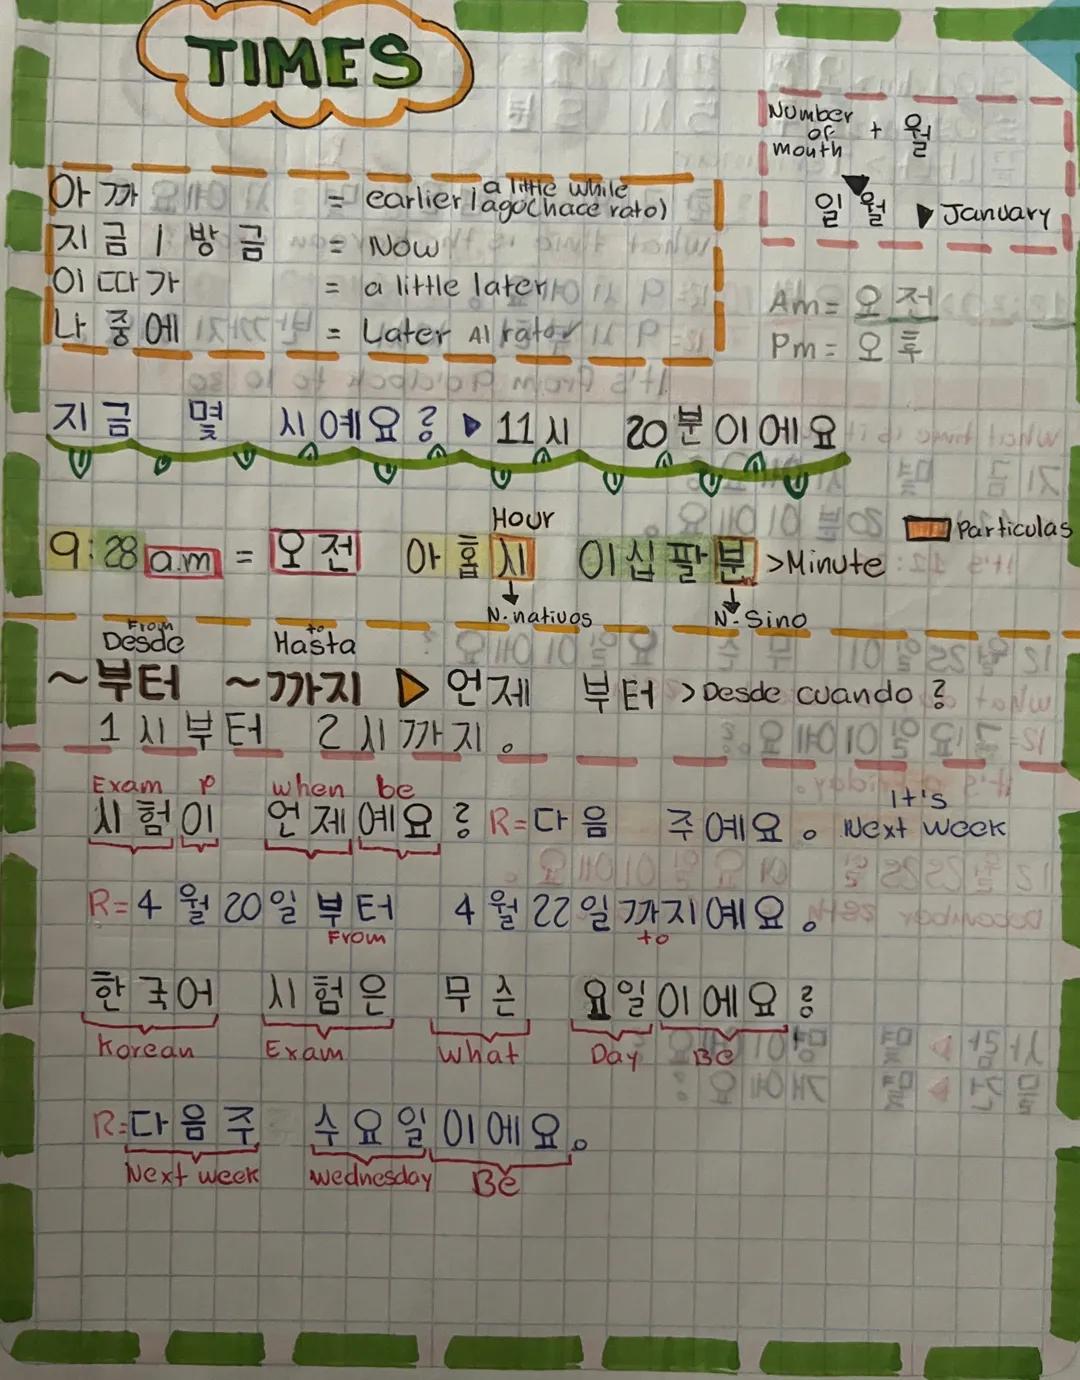 TIMES
Number of mouth + 월
일 월 ▶ January
아 까 = earlier / a little while ago (hace rato)
지 금 / 방 금 = Now
이 따 가 = a little later
나 중 에 = Later Al rato
Am = 오 전
Pm = 오 후
지 금 몇 시 예 요 ? ▶ 11 시 20 분 이 에 요
Hour
Particulas
9:28 a.m = 오 전 아 홉 시 이 십 팔 분 > Minute
N. nativos N. Sino
From to
Desde Hasta
~부터 ~까지 ▶ 언 제 부 터 > Desde cuando ?
1 시 부 터 2 시 까 지 .
Exam P when be
시 험 이 언 제 예 요 ? R= 다 음 주 예 요 . It's Next week
R= 4 월 20 일 부 터 4 월 22 일 까 지 예 요 .
From to
한 국 어 시 험 은 무 슨 요 일 이 에 요 ?
Korean Exam what Day Be
R= 다 음 주 수 요 일 이 에 요 .
Next week wednesday Be